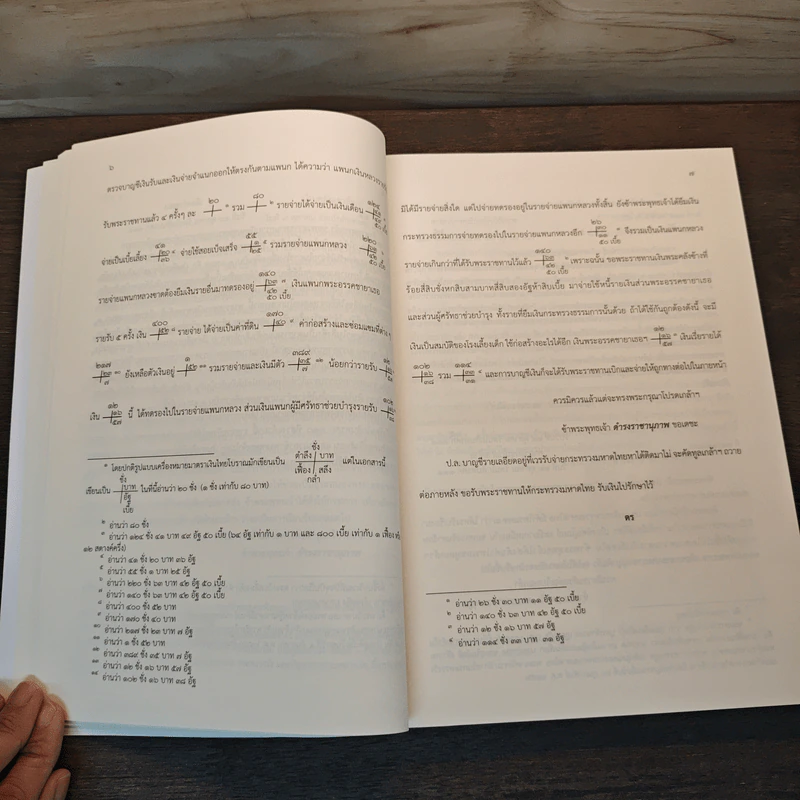 ๖
ตรวจบาญชีเงินรับและเงินจ่ายจำแนกออกให้ตรงกันตามแพนก ได้ความว่า แพนกเงินหลวง
๒๐ ๘๐ ๑๒๔
รับพระราชทานแล้ว ๔ ครั้งๆ ละ ๑ รวม ๒ รายจ่ายได้จ่ายเป็นเงินเดือน
๕๐ เบี้ย
๔๑ ๕๕ ๒๒๐
จ่ายเป็นเบี้ยเลี้ยง ๒๐ ๓๖ ๔ จ่ายใช้สอยเบ็จเสร็จ ๑ ๒๕ ๕ รวมรายจ่ายแพนกหลวง ๖๓ ๔๒
๕๐ เบี้ย
๑๔๐
รายจ่ายแพนกหลวงขาดต้องยืมเงินรายอื่นมาทดรองอยู่ ๖๓ ๔๒ ๗ เงินแพนกพระอรรคชายาเธอ
๕๐ เบี้ย
๔๐๐ ๑๗๐
รายรับ ๕ ครั้ง เงิน ๕๒ ๘ รายจ่าย ได้จ่ายเป็นค่าที่ดิน ๔๐ ๙ ค่าก่อสร้างและซ่อมแซมที่ต่างๆ
๒๑๗ ๑ ๓๘๙
๒๓ ๗ ๑๐ ยังเหลือตัวเงินอยู่ ๕๒ ๑๑ รวมรายจ่ายและเงินมีตัว ๓๕ ๗ ๑๒ น้อยกว่ารายรับ
๑๒
เงิน ๑๖ ๕๗ นี้ ได้ทดรองไปในรายจ่ายแพนกหลวง ส่วนเงินแพนกผู้มีศรัทธาช่วยบำรุงรายรับ
๑ โดยปกติรูปแบบเครื่องหมายมาตราเงินไทยโบราณมักเขียนเป็น ชั่ง ตำลึง บาท เฟื้อง สลึง กล่ำ แต่ในเอกสารนี้
เขียนเป็น ชั่ง บาท อัฐ เบี้ย ในที่นี้อ่านว่า ๒๐ ชั่ง (๑ ชั่ง เท่ากับ ๘๐ บาท)
๒ อ่านว่า ๘๐ ชั่ง
๓ อ่านว่า ๑๒๔ ชั่ง ๔๑ บาท ๔๙ อัฐ ๕๐ เบี้ย (๖๔ อัฐ เท่ากับ ๑ บาท และ ๘๐๐ เบี้ย เท่ากับ ๑ เฟื้อง หรือ
๑๒ สตางค์ครึ่ง)
๔ อ่านว่า ๔๑ ชั่ง ๒๐ บาท ๓๖ อัฐ
๕ อ่านว่า ๕๕ ชั่ง ๑ บาท ๒๕ อัฐ
๖ อ่านว่า ๒๒๐ ชั่ง ๖๓ บาท ๔๒ อัฐ ๕๐ เบี้ย
๗ อ่านว่า ๑๔๐ ชั่ง ๖๓ บาท ๔๒ อัฐ ๕๐ เบี้ย
๘ อ่านว่า ๔๐๐ ชั่ง ๕๒ บาท
๙ อ่านว่า ๑๗๐ ชั่ง ๔๐ บาท
๑๐ อ่านว่า ๒๑๗ ชั่ง ๒๓ บาท ๗ อัฐ
๑๑ อ่านว่า ๑ ชั่ง ๕๒ บาท
๑๒ อ่านว่า ๓๘๙ ชั่ง ๓๕ บาท ๗ อัฐ
๑๓ อ่านว่า ๑๒ ชั่ง ๑๖ บาท ๕๗ อัฐ
๑๔ อ่านว่า ๑๐๒ ชั่ง ๑๖ บาท ๓๘ อัฐ
๗
มิได้มีรายจ่ายสิ่งใด แต่ไปจ่ายทดรองอยู่ในรายจ่ายแพนกหลวงทั้งสิ้น ยังข้าพระพุทธเจ้าได้ยืมเงิน
๒๖
กระทรวงธรรมการจ่ายทดรองไปในรายจ่ายแพนกหลวงอีก ๓๐ ๑๑ ๑ จึงรวมเป็นเงินแพนกหลวง
๕๐ เบี้ย
๑๔๐
รายจ่ายเกินกว่าที่ได้รับพระราชทานไว้แล้ว ๖๓ ๔๒ ๒ เพราะฉนั้น ขอพระราชทานเงินพระคลังข้างที่
๕๐ เบี้ย
ร้อยสี่สิบชั่งหกสิบสามบาทสี่สิบสองอัฐห้าสิบเบี้ย มาจ่ายใช้หนี้รายเงินส่วนพระอรรคชายาเธอ
และส่วนผู้ศรัทธาช่วยบำรุง ทั้งรายที่ยืมเงินกระทรวงธรรมการนั้นด้วย ถ้าได้ใช้กันถูกต้องดังนี้ จะมี
๑๒
เงินเป็นสมบัติของโรงเลี้ยงเด็ก ใช้ก่อสร้างอะไรได้อีก เงินพระอรรคชายาเธอฯ ๑๖ ๕๗ ๓ เงินเรี่ยรายได้
๑๐๒ ๑๑๔
๑๖ ๓๘ รวม ๓๓ ๓๑ ๔ และการบาญชีเงินก็จะได้รับพระราชทานเบิกและจ่ายให้ถูกทางต่อไปในภายหน้า
ควรมิควรแล้วแต่จะทรงพระกรุณาโปรดเกล้าฯ
ข้าพระพุทธเจ้า ดำรงราชานุภาพ ขอเดชะ
ป.ล. บาญชีรายเลอียดอยู่ที่เวรรับจ่ายกระทรวงมหาดไทยหาได้ติดมาไม่ จะคัดทูลเกล้าฯ ถวาย
ต่อภายหลัง ขอรับพระราชทานให้กระทรวงมหาดไทย รับเงินไปรักษาไว้
ดร
๑ อ่านว่า ๒๖ ชั่ง ๓๐ บาท ๑๑ อัฐ ๕๐ เบี้ย
๒ อ่านว่า ๑๔๐ ชั่ง ๖๓ บาท ๔๒ อัฐ ๕๐ เบี้ย
๓ อ่านว่า ๑๒ ชั่ง ๑๖ บาท ๕๗ อัฐ
๔ อ่านว่า ๑๑๔ ชั่ง ๓๓ บาท ๓๑ อัฐ